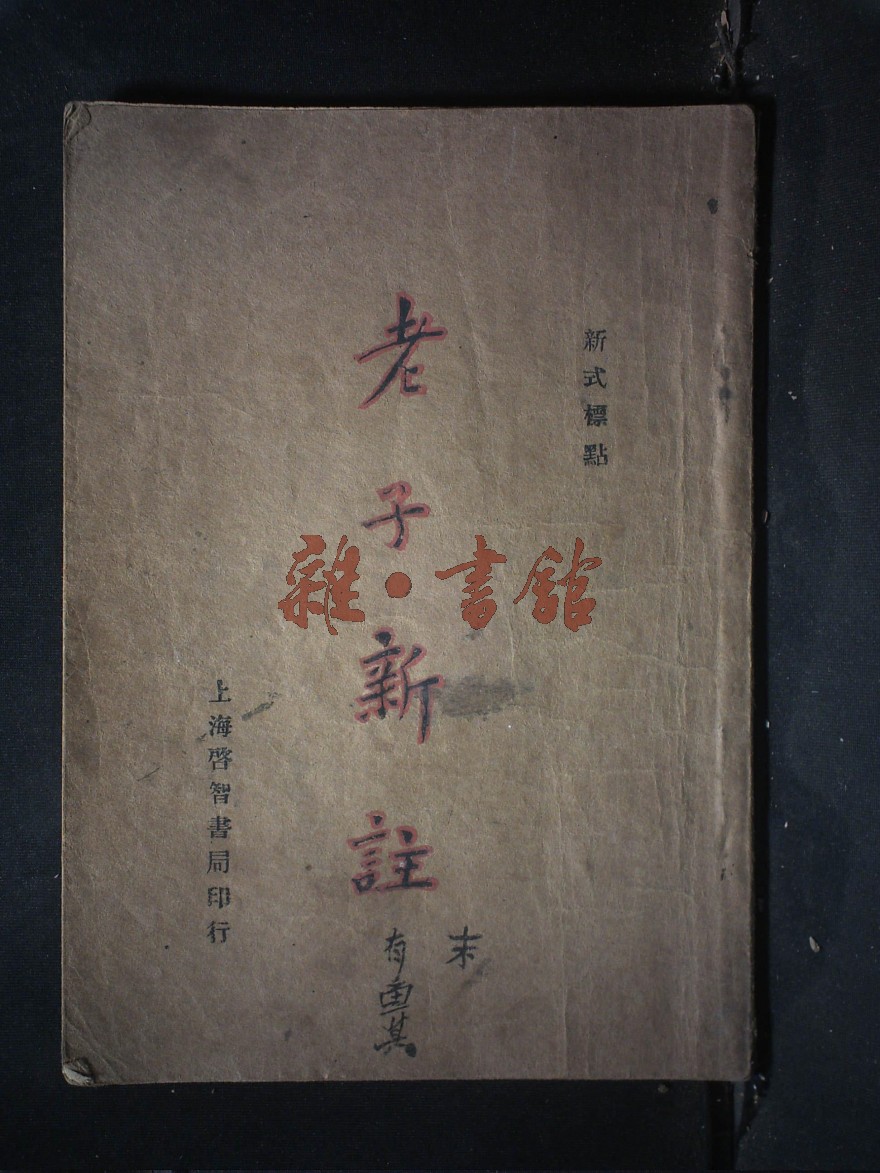 新式標點
老子新註
上海啓智書局印行
雜·書館
末
有
其